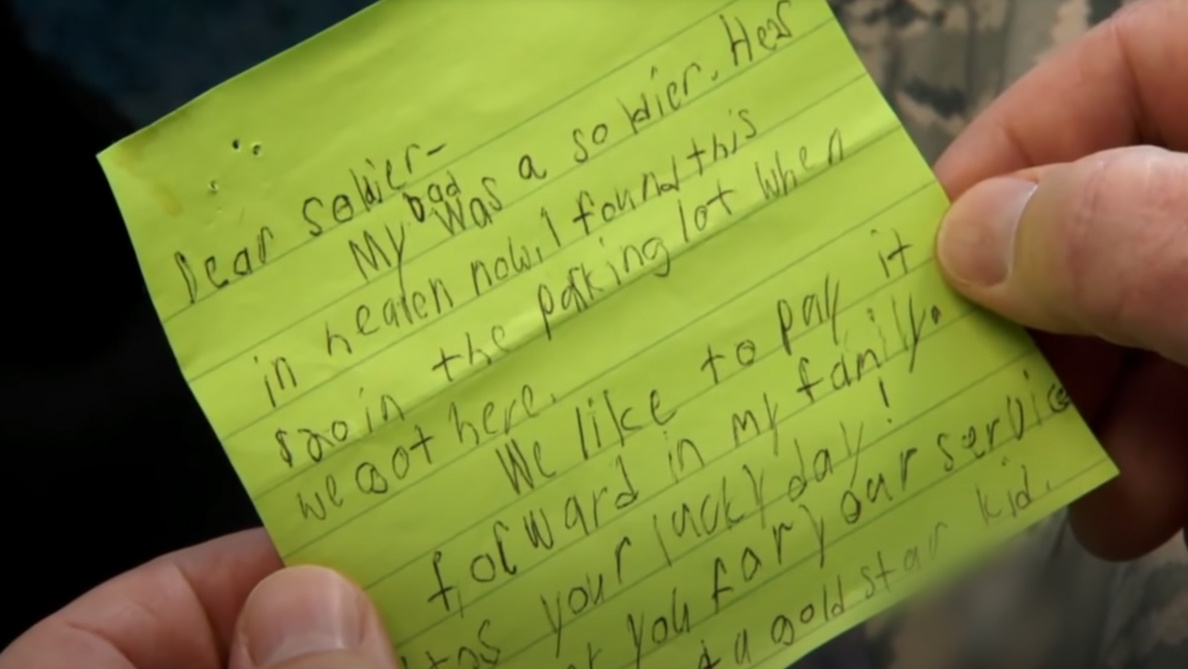 Dear soldier-
My Dad was a soldier. Hes
in heaven now. I found this
$20 in the parking lot when
we got here.
We like to pay it
forward in my family.
your lucky day!
you for your service
a gold star kid.